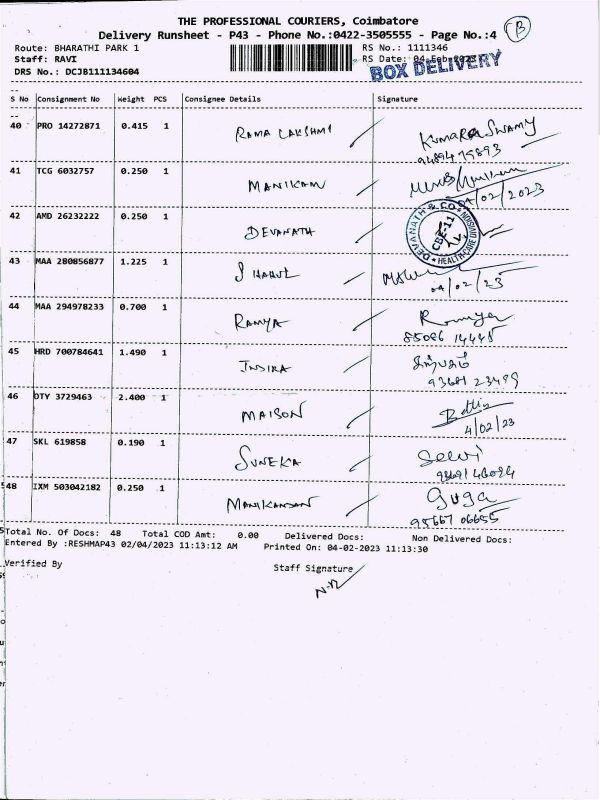 THE PROFESSIONAL COURIERS, Coimbatore
Delivery Runsheet - P43 - Phone No.:0422-3505555 - Page No.:4 B
Route: BHARATHI PARK 1 RS No.: 1111346
Staff: RAVI RS Date: 04-Feb-2023
DRS No.: DCJB111134604 BOX DELIVERY
S No Consignment No Weight PCS Consignee Details Signature
40 PRO 14272871 0.415 1 RAMA LAKSHMI KUMARA SWAMY
41 TCG 6032757 0.250 1 MANIKAM
04/02/2023
42 AMD 26232222 0.250 1 DEVANATH DEVANATH & CO. CBE-11
43 MAA 280856877 1.225 1 SHAHUL
04/02/23
44 MAA 294978233 0.700 1 RAMYA Ramya
85086 14445
45 HRD 700784641 1.490 1 INDIRA
93681 23499
46 DTY 3729463 2.400 1 MAISON
4/02/23
47 SKL 619858 0.190 1 SUNEKA Selvi
48 IXM 503042182 0.250 1 MANIKANDAN Guga
95667 06655
Total No. Of Docs: 48 Total COD Amt: 0.00 Delivered Docs: Non Delivered Docs:
Entered By :RESHMAP43 02/04/2023 11:13:12 AM Printed On: 04-02-2023 11:13:30
Verified By Staff Signature